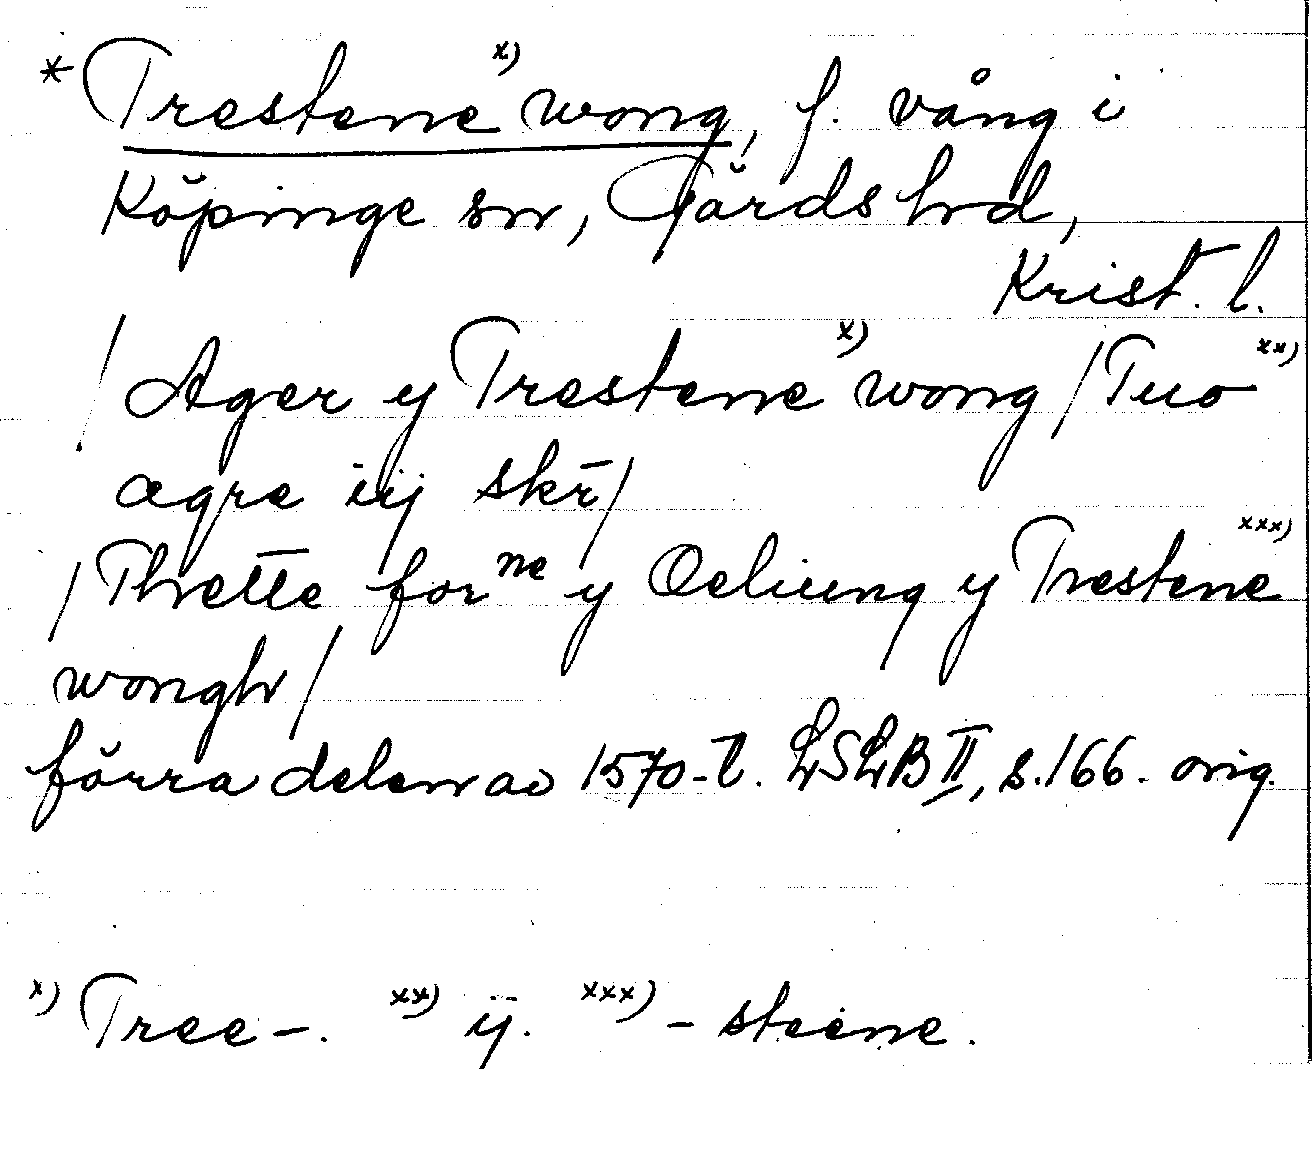 * Trestene x) wong, f. vång i
Köpinge sn, Gärds hd,
Krist. l.
/Ager y Trestene x) wong/Tuo xx)
agre iij skr̄/
/Thrette forne y Oeliung y Trestene xxx)
wongh/
förra delen av 1570-t. LSLB II, s. 166. orig.
x) Tree-. xx) ij. xxx) -steene.